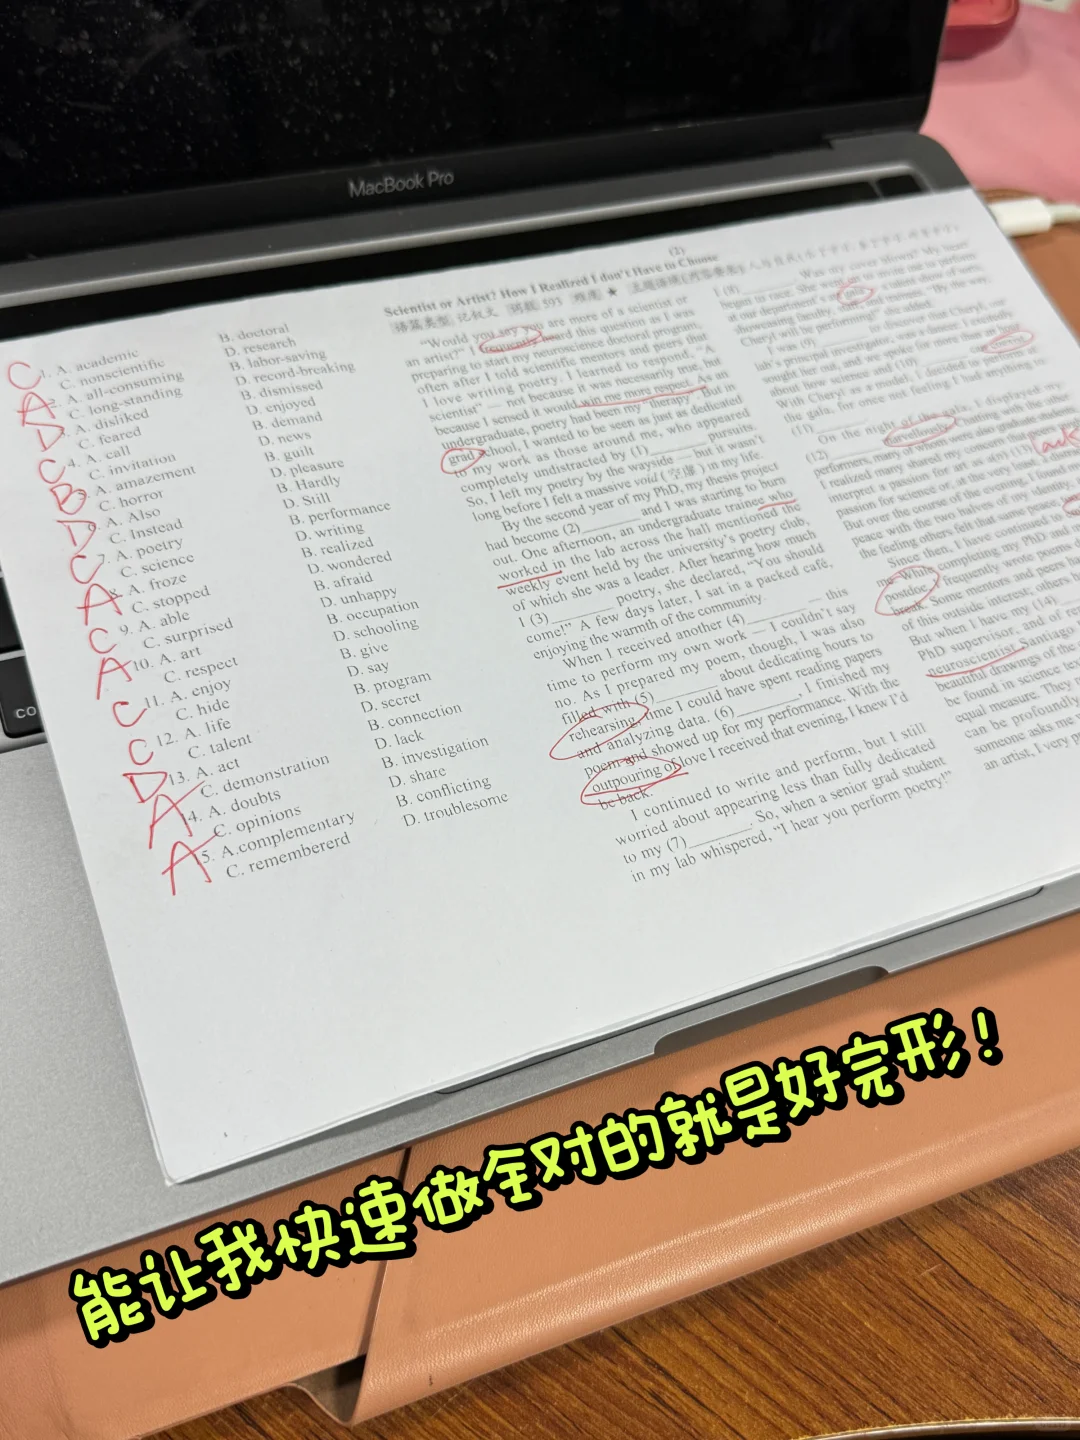 MacBook Pro
(2)
Scientist or Artist? How I Realized I don't Have to Choose
语篇类型 记叙文 词数 593 难度 ★ 主题语境
C 1. A. academic B. doctoral
C. nonscientific D. research
A 2. A. all-consuming B. labor-saving
C. long-standing D. record-breaking
D 3. A. disliked B. dismissed
C. feared D. enjoyed
C 4. A. call B. demand
C. invitation D. news
B 5. A. amazement B. guilt
C. horror D. pleasure
D 6. A. Also B. Hardly
C. Instead D. Still
C 7. A. poetry B. performance
C. science D. writing
A 8. A. froze B. realized
C. stopped D. wondered
C 9. A. able B. afraid
C. surprised D. unhappy
A 10. A. art B. occupation
C. respect D. schooling
C 11. A. enjoy B. give
C. hide D. say
C 12. A. life B. program
C. talent D. secret
D 13. A. act B. connection
C. demonstration D. lack
A 14. A. doubts B. investigation
C. opinions D. share
A 15. A.complementary B. conflicting
C. remembererd D. troublesome
"Would you say you are more of a scientist or
an artist?" I frequently heard this question as I was
preparing to start my neuroscience doctoral program,
often after I told scientific mentors and peers that
I love writing poetry. I learned to respond, "A
scientist" — not because it was necessarily true, but
because I sensed it would win me more respect. As an
undergraduate, poetry had been my therapy. But in
grad school, I wanted to be seen as just as dedicated
to my work as those around me, who appeared
completely undistracted by (1)________ pursuits.
So, I left my poetry by the wayside — but it wasn't
long before I felt a massive void (空虚) in my life.
By the second year of my PhD, my thesis project
had become (2)________ and I was starting to burn
out. One afternoon, an undergraduate trainee who
worked in the lab across the hall mentioned the
weekly event held by the university's poetry club,
of which she was a leader. After hearing how much
I (3)________ poetry, she declared, "You should
come!" A few days later, I sat in a packed café,
enjoying the warmth of the community.
When I received another (4)________ — this
time to perform my own work — I couldn't say
no. As I prepared my poem, though, I was also
filled with (5)________ about dedicating hours to
rehearsing, time I could have spent reading papers
and analyzing data. (6)________, I finished my
poem and showed up for my performance. With the
outpouring of love I received that evening, I knew I'd
be back.
I continued to write and perform, but I still
worried about appearing less than fully dedicated
to my (7)________. So, when a senior grad student
in my lab whispered, "I hear you perform poetry!"
I (8)________. Was my cover blown? My heart
began to race. She was
to invite me to perform
at our department's gala, a talent show of sorts,
showcasing faculty, student and
"By the way,
Cheryl will be performing!" she added.
I was (9)________ to discover that Cheryl, our
lab's principal investigator, was a
sought her out, and we spoke for more than an hour
about how science and (10)________ can coexist.
With Cheryl as a model, I decided to perform at
the gala, for once not feeling I had anything to
(11)________.
On the night of the gala, I displayed my
(12)________ marvellously. Chatting with the other
performers, many of whom were also graduate students,
I realized many shared my concern that
interpret a passion for art as a(n) (13)
lack
passion for science or, at the very least, a
But over the course of the evening, I found
peace with the two halves of my identity.
the feeling others felt that same peace
Since then, I have continued to
me. While completing my PhD and
postdoc, I frequently wrote poems
break. Some mentors and peers
of this outside interest; others
But when I have my (14)
PhD supervisor, and of
neuroscientist Santiago
beautiful drawings of the
be found in science
equal measure. They
can be profoundly
someone asks me
an artist, I very
能让我快速做全对的就是好完形！